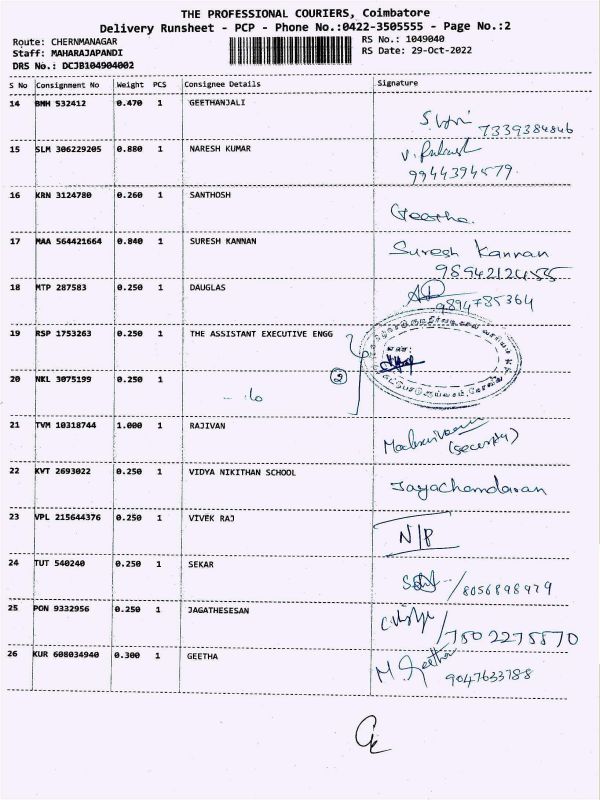 THE PROFESSIONAL COURIERS, Coimbatore
Delivery Runsheet - PCP - Phone No.:0422-3505555 - Page No.:2
Route: CHERNMANAGAR
RS No.: 1049040
Staff: MAHARAJAPANDI
RS Date: 29-Oct-2022
DRS No.: DCJB104904002
S No Consignment No Weight PCS Consignee Details Signature
14 BMH 532412 0.470 1 GEETHANJALI
7339384846
15 SLM 306229205 0.880 1 NARESH KUMAR
9944394579.
16 KRN 3124780 0.260 1 SANTHOSH Geetha.
17 MAA 564421664 0.840 1 SURESH KANNAN Suresh Kannan
9894212455
18 MTP 287583 0.250 1 DAUGLAS
9894785364
19 RSP 1753263 0.250 1 THE ASSISTANT EXECUTIVE ENGG
2
20 NKL 3075199 0.250 1
21 TVM 10318744 1.000 1 RAJIVAN
(security)
22 KVT 2693022 0.250 1 VIDYA NIKITHAN SCHOOL Jayachandaran
23 VPL 215644376 0.250 1 VIVEK RAJ N/P
24 TUT 540240 0.250 1 SEKAR
/8056898979
25 PON 9332956 0.250 1 JAGATHESESAN
/7502275870
26 KUR 608034940 0.300 1 GEETHA M. Geetha
9047633788